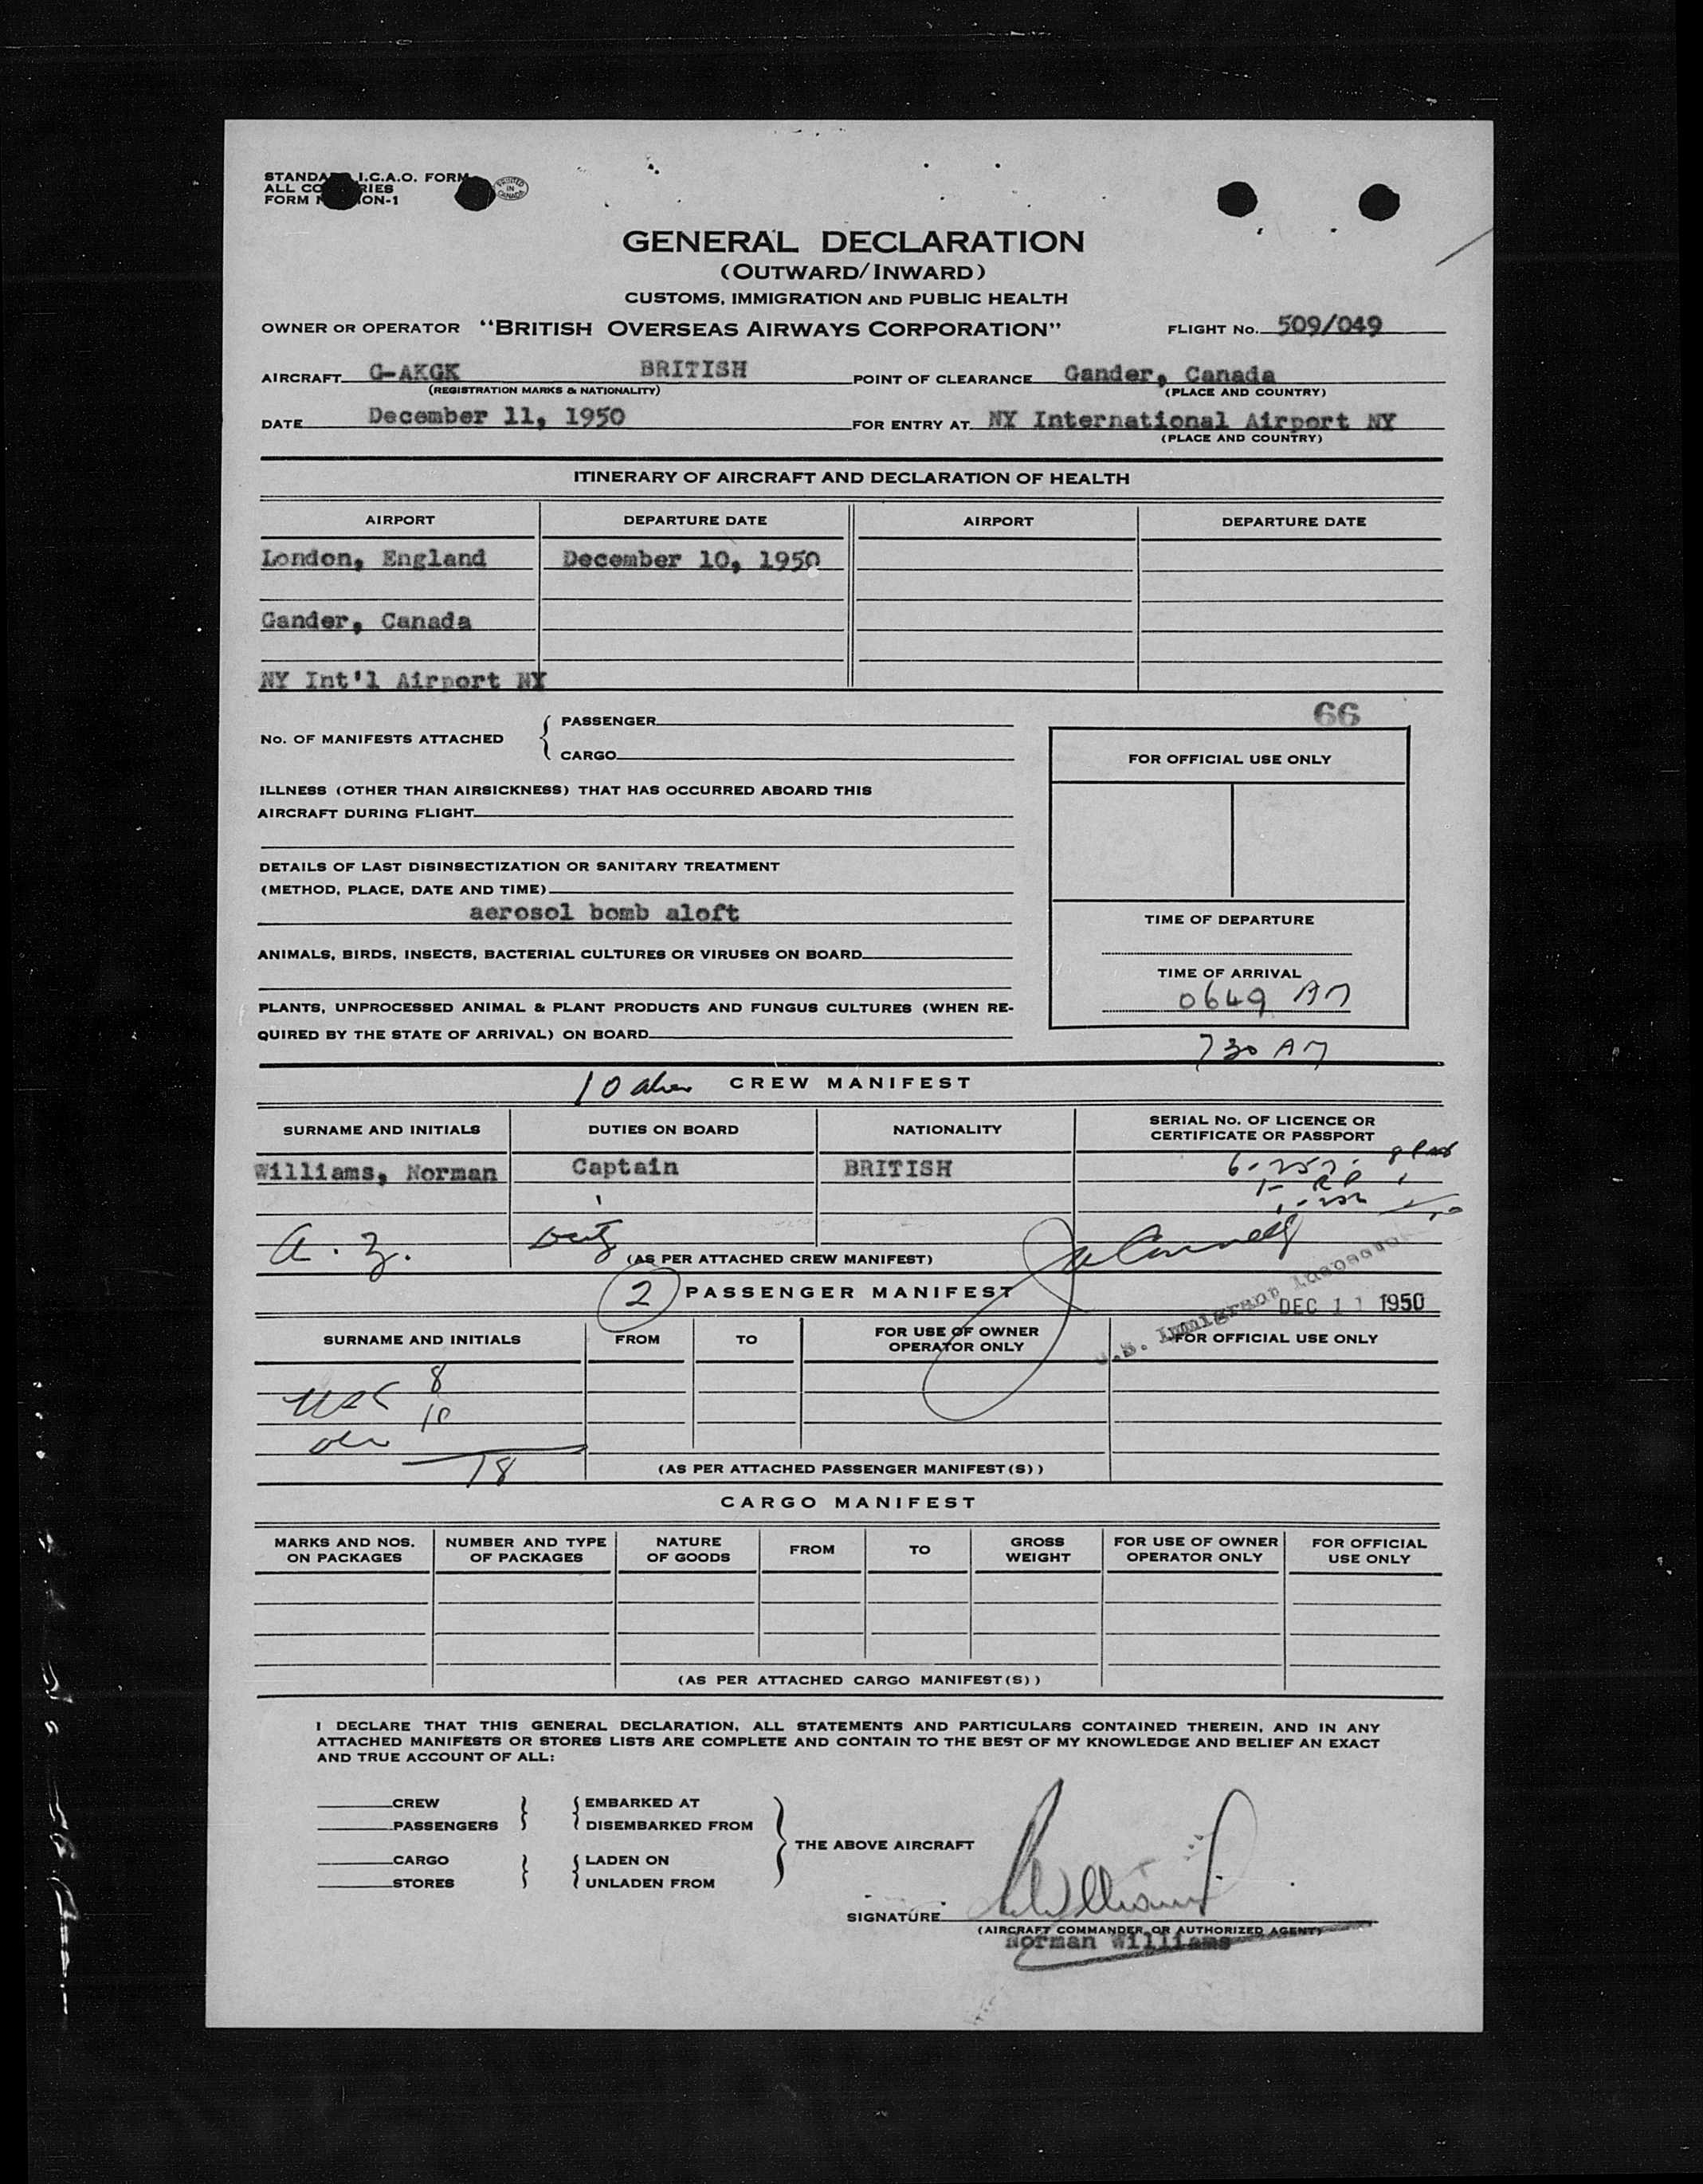 STANDARD I.C.A.O. FORM
ALL COUNTRIES
FORM ON-1
PRINTED IN CANADA
GENERAL DECLARATION
(OUTWARD/INWARD)
CUSTOMS, IMMIGRATION AND PUBLIC HEALTH
OWNER OR OPERATOR "BRITISH OVERSEAS AIRWAYS CORPORATION" FLIGHT No. 509/049
AIRCRAFT G-AKGK BRITISH POINT OF CLEARANCE Gander, Canada
(REGISTRATION MARKS & NATIONALITY) (PLACE AND COUNTRY)
DATE December 11, 1950 FOR ENTRY AT NY International Airport NY
(PLACE AND COUNTRY)
ITINERARY OF AIRCRAFT AND DECLARATION OF HEALTH
AIRPORT DEPARTURE DATE AIRPORT DEPARTURE DATE
London, England December 10, 1950
Gander, Canada
NY Int'l Airport NY
66
No. OF MANIFESTS ATTACHED { PASSENGER
CARGO
FOR OFFICIAL USE ONLY
ILLNESS (OTHER THAN AIRSICKNESS) THAT HAS OCCURRED ABOARD THIS
AIRCRAFT DURING FLIGHT
DETAILS OF LAST DISINSECTIZATION OR SANITARY TREATMENT
(METHOD, PLACE, DATE AND TIME)
aerosol bomb aloft
TIME OF DEPARTURE
ANIMALS, BIRDS, INSECTS, BACTERIAL CULTURES OR VIRUSES ON BOARD
TIME OF ARRIVAL
0649 AM
PLANTS, UNPROCESSED ANIMAL & PLANT PRODUCTS AND FUNGUS CULTURES (WHEN RE-
QUIRED BY THE STATE OF ARRIVAL) ON BOARD
730 AM
10 CREW MANIFEST
SURNAME AND INITIALS DUTIES ON BOARD NATIONALITY SERIAL No. OF LICENCE OR
CERTIFICATE OR PASSPORT
Williams, Norman Captain BRITISH
(AS PER ATTACHED CREW MANIFEST)
2 PASSENGER MANIFEST
U.S. Immigrant Inspector
DEC 11 1950
SURNAME AND INITIALS FROM TO FOR USE OF OWNER
OPERATOR ONLY FOR OFFICIAL USE ONLY
8
10
18
(AS PER ATTACHED PASSENGER MANIFEST(S))
CARGO MANIFEST
MARKS AND NOS.
ON PACKAGES NUMBER AND TYPE
OF PACKAGES NATURE
OF GOODS FROM TO GROSS
WEIGHT FOR USE OF OWNER
OPERATOR ONLY FOR OFFICIAL
USE ONLY
(AS PER ATTACHED CARGO MANIFEST(S))
I DECLARE THAT THIS GENERAL DECLARATION, ALL STATEMENTS AND PARTICULARS CONTAINED THEREIN, AND IN ANY
ATTACHED MANIFESTS OR STORES LISTS ARE COMPLETE AND CONTAIN TO THE BEST OF MY KNOWLEDGE AND BELIEF AN EXACT
AND TRUE ACCOUNT OF ALL:
CREW EMBARKED AT
PASSENGERS DISEMBARKED FROM
THE ABOVE AIRCRAFT
CARGO LADEN ON
STORES UNLADEN FROM
SIGNATURE N Williams
(AIRCRAFT COMMANDER OR AUTHORIZED AGENT)
Norman Williams